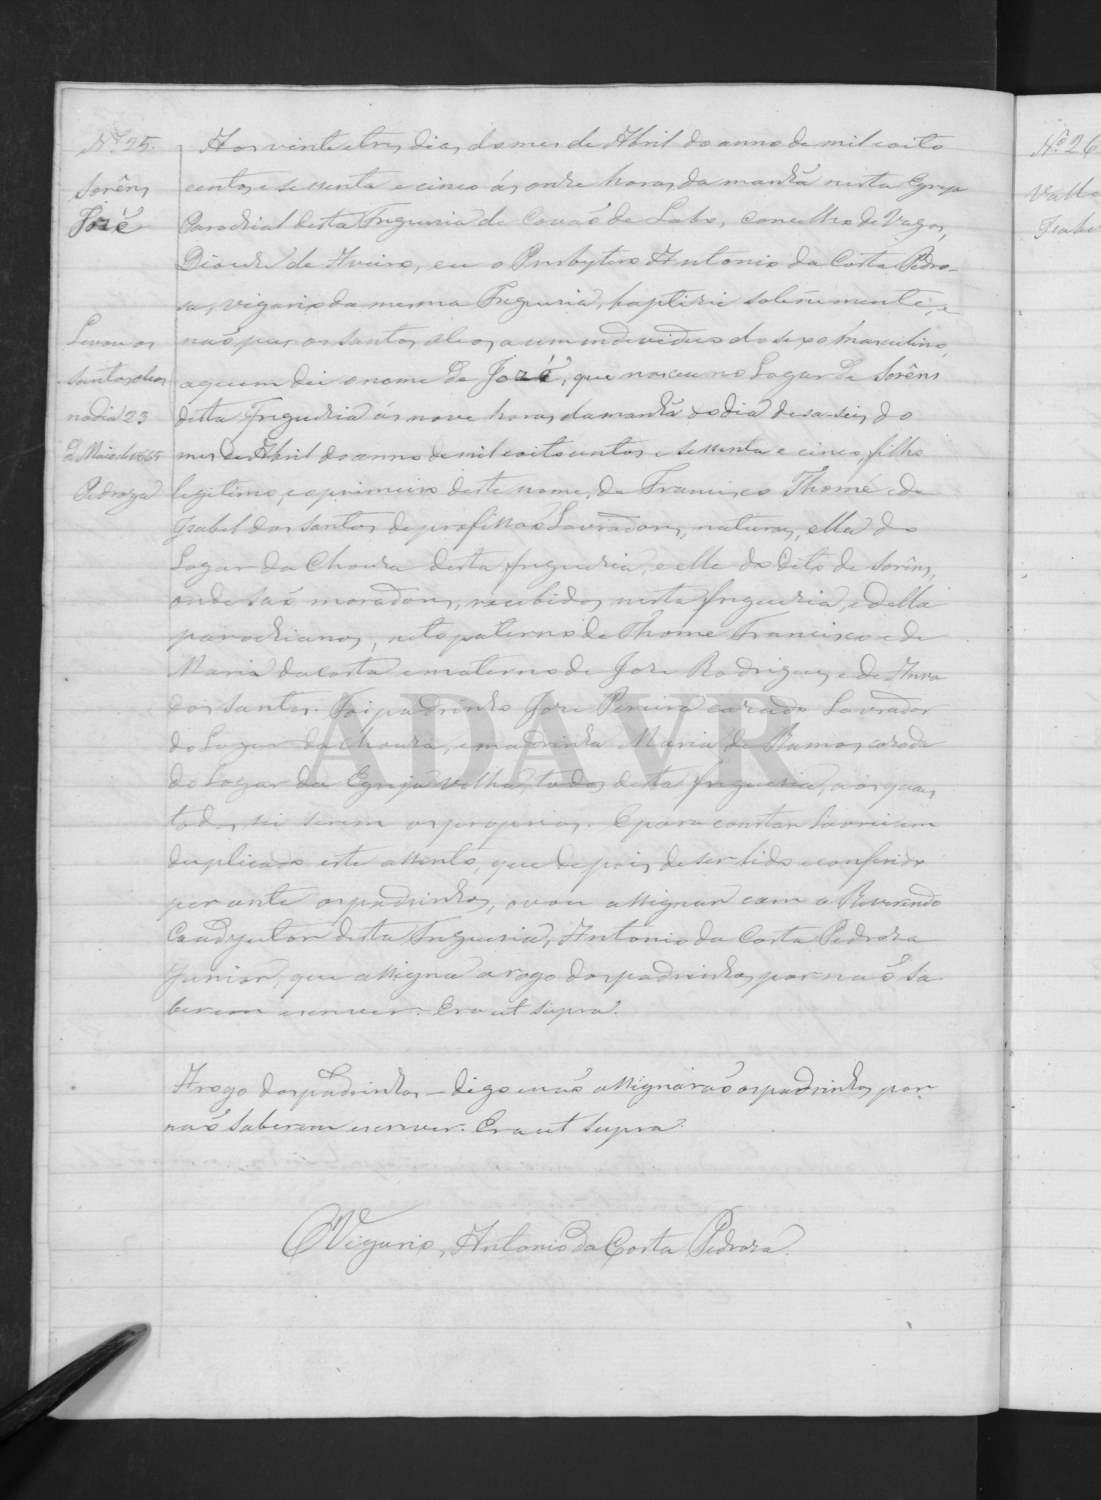 Nº 25.
Sorêns
José
Levou os
santos oleos
no dia 23
de Maio de 1865
Pedroza
Aos vinte e tres dias do mes de Abril do anno de mil e oito
centos e sessenta e cinco ás onze horas da manhã nesta Egreja
Parochial desta Freguesia de Covaõ do Lobo, concelho de Vagos,
Diocese de Aveiro, eu o Presbytero Antonio da Costa Pedro-
sa, vigario da mesma Freguesia, baptisei solemnemente, e
naõ pus os santos oleos, a um individuo do sexo masculino,
a quem dei o nome de José, que nasceu no Lugar de Sorêns
desta Freguesia ás nove horas da manhã do dia desaseis do
mes de Abril do anno de mil oitocentos e sessenta e cinco, filho
legitimo, e o primeiro deste nome, de Francisco Thomé e de
Isabel dos Santos de profissaõ Lavradores, naturaes, ella do
Lugar da Choura desta freguesia, e elle do dito de Sorêns,
onde saõ moradores, recebidos nesta freguesia, e della
parochianos, neto paterno de Thome Francisco e de
Maria da costa e materno de Jose Rodrigues e de Anna
dos Santos. Foi padrinho Jose Pereira casado Lavrador
do Lugar da Choura, e madrinha Maria de Ramos casada
do Lugar da Egreja velha, todos desta freguesia, a os quaes
todos sei serem os proprios. E para constar lavrei em
duplicado este assento, que depois de ser lido e conferido
perante os padrinhos, o vou assignar com o Reverendo
Coadjutor desta Freguesia, Antonio da Costa Pedroza
Junior, que assigna a rogo dos padrinhos por naõ sa
berem escrever. Era ut supra.
A rogo dos padrinhos — digo naõ assignaraõ os padrinhos por
naõ saberem escrever. Era ut supra
O Vigario, Antonio da Costa Pedroza.
ADAVR
Nº 26
Valle